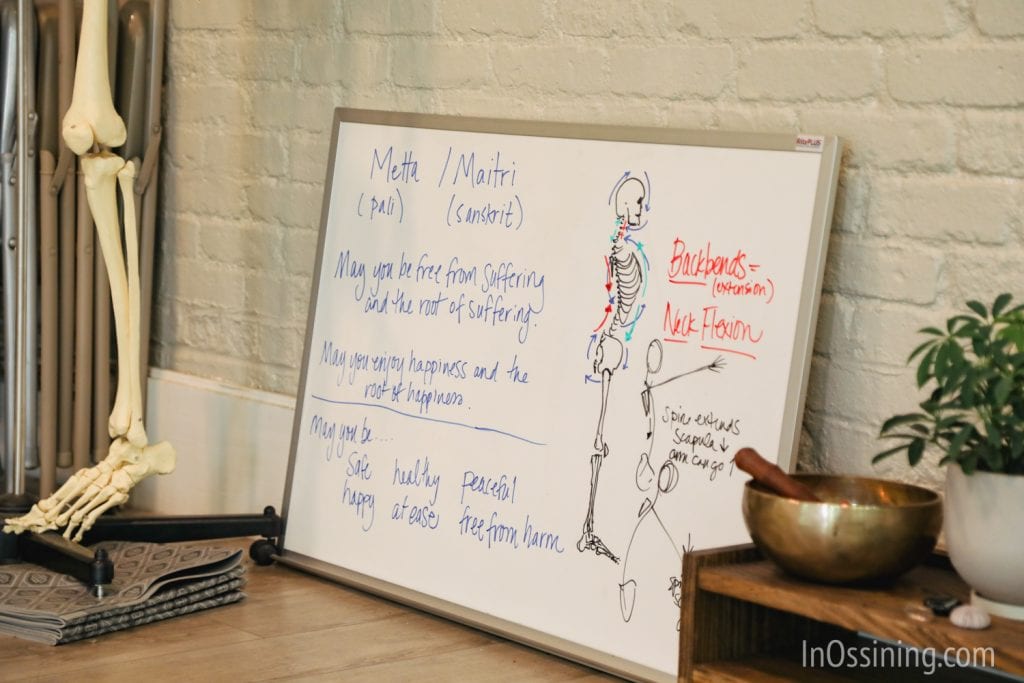 Metta / Maitri
(pali) (sanskrit)
May you be free from suffering
and the root of suffering.
May you enjoy happiness and the
root of happiness.
May you be....
safe healthy peaceful
happy at ease free from harm
Backbends =
(extension)
Neck Flexion
spine extends
scapula ↓
arm can go ↑
InOssining.com